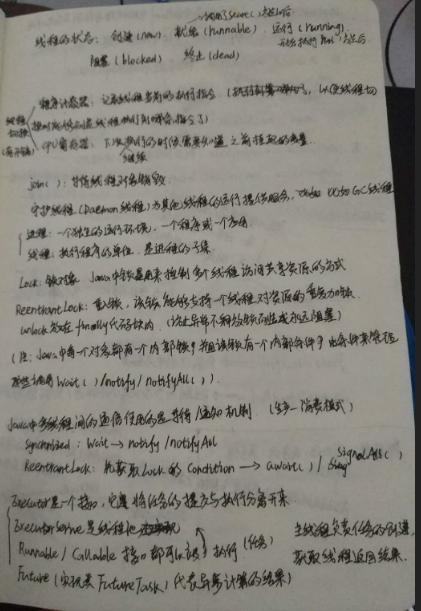 调用了start()方法后
线程的状态: 创建(new), 就绪(runnable), 运行(running)
开始执行run()方法后
阻塞(blocked) 终止(dead)
程序计数器: 记录线程当前的执行指令
线程切换
CPU寄存器: 下次执行的时候需要知道之前挂起的
继续
join(): 等待线程对象销毁
守护线程(Daemon线程)为其他线程的运行提供服务, 比如GC线程
进程: 一个独立的运行环境, 一个程序或一个应用
线程: 执行程序的单位, 是进程的子集
Lock: 锁对象 Java中锁是用来控制多个线程访问共享资源的方式
ReentrantLock: 重入锁, 该锁能够支持一个线程对资源的重复加锁
unlock放在finally代码块内
(注: Java中每个对象都有一个内部锁, 并且该锁有一个内部条件, 由条件来管理
那些调用wait()/notify/notifyAll()).
Java中多线程间的通信使用的是等待/通知机制 (生产—消费模式)
Synchronized: Wait → notify/notifyAll
ReentrantLock: 先获取Lock的Condition → await()/ SignalAll()
Executor是一个接口, 它是将任务的提交与执行分离开来
ExecutorService是线程池
Runnable/Callable 接口都可以被 执行 (任务)
主线程负责任务的创建,
获取线程返回结果.
Future(实现类FutureTask)代表异步计算的结果)